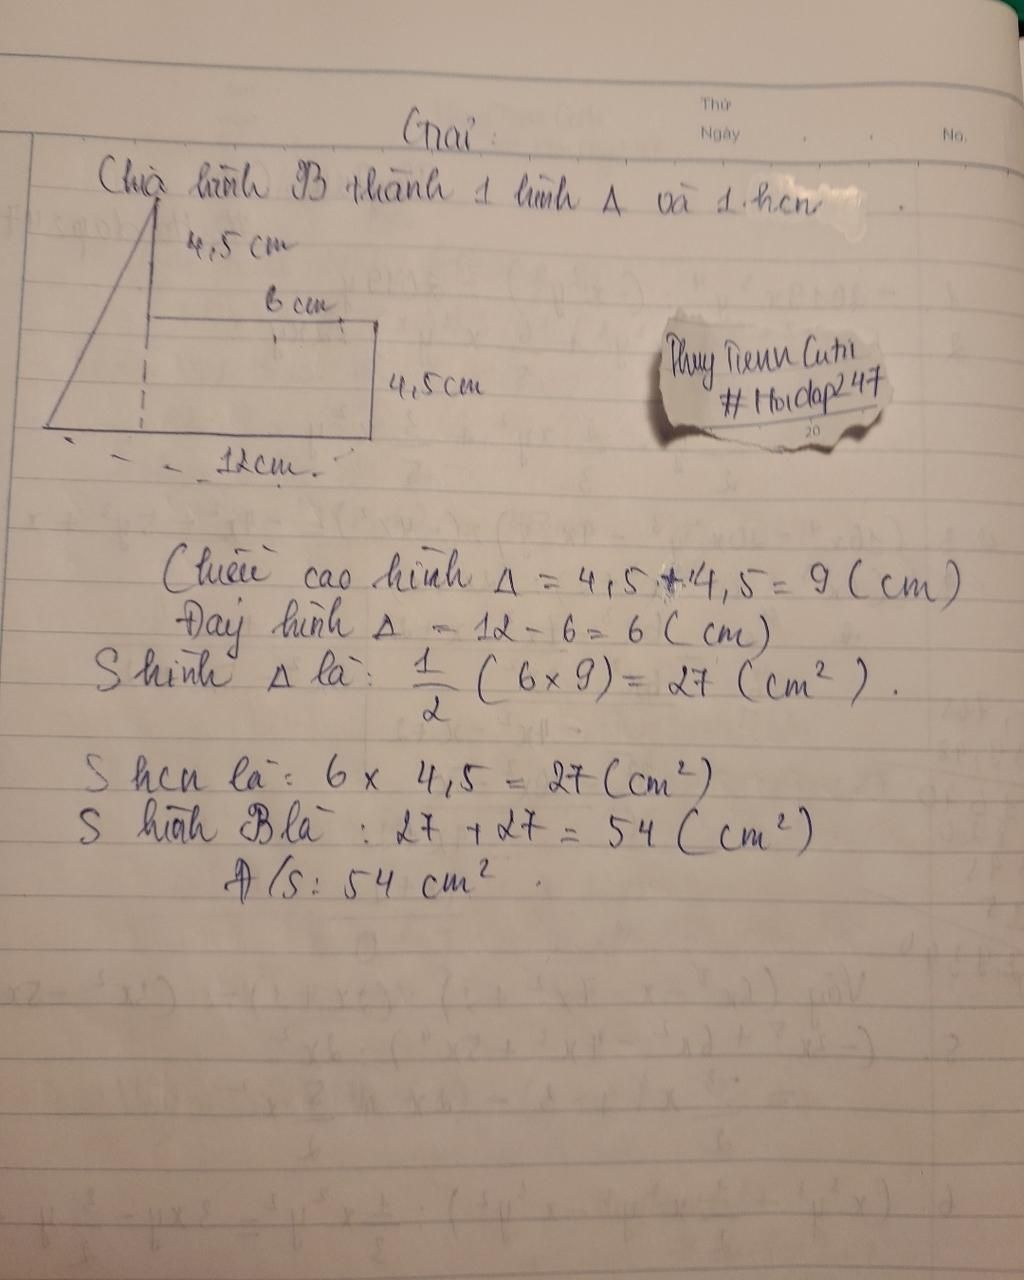 Thứ
Ngày
No.
Giải:
Chia hình B thành 1 hình Δ và 1 hcn
4,5 cm
6 cm
4,5cm
12cm.
Thuy Tienn Cutii
# Hoidap247
20
Chiều cao hình Δ = 4,5 + 4,5 = 9 (cm)
Đáy hình Δ = 12 - 6 = 6 (cm)
S hình Δ là: 1/2 (6 x 9) = 27 (cm²).
S hcn là: 6 x 4,5 = 27 (cm²)
S hình B là: 27 + 27 = 54 (cm²)
Đ/S: 54 cm².